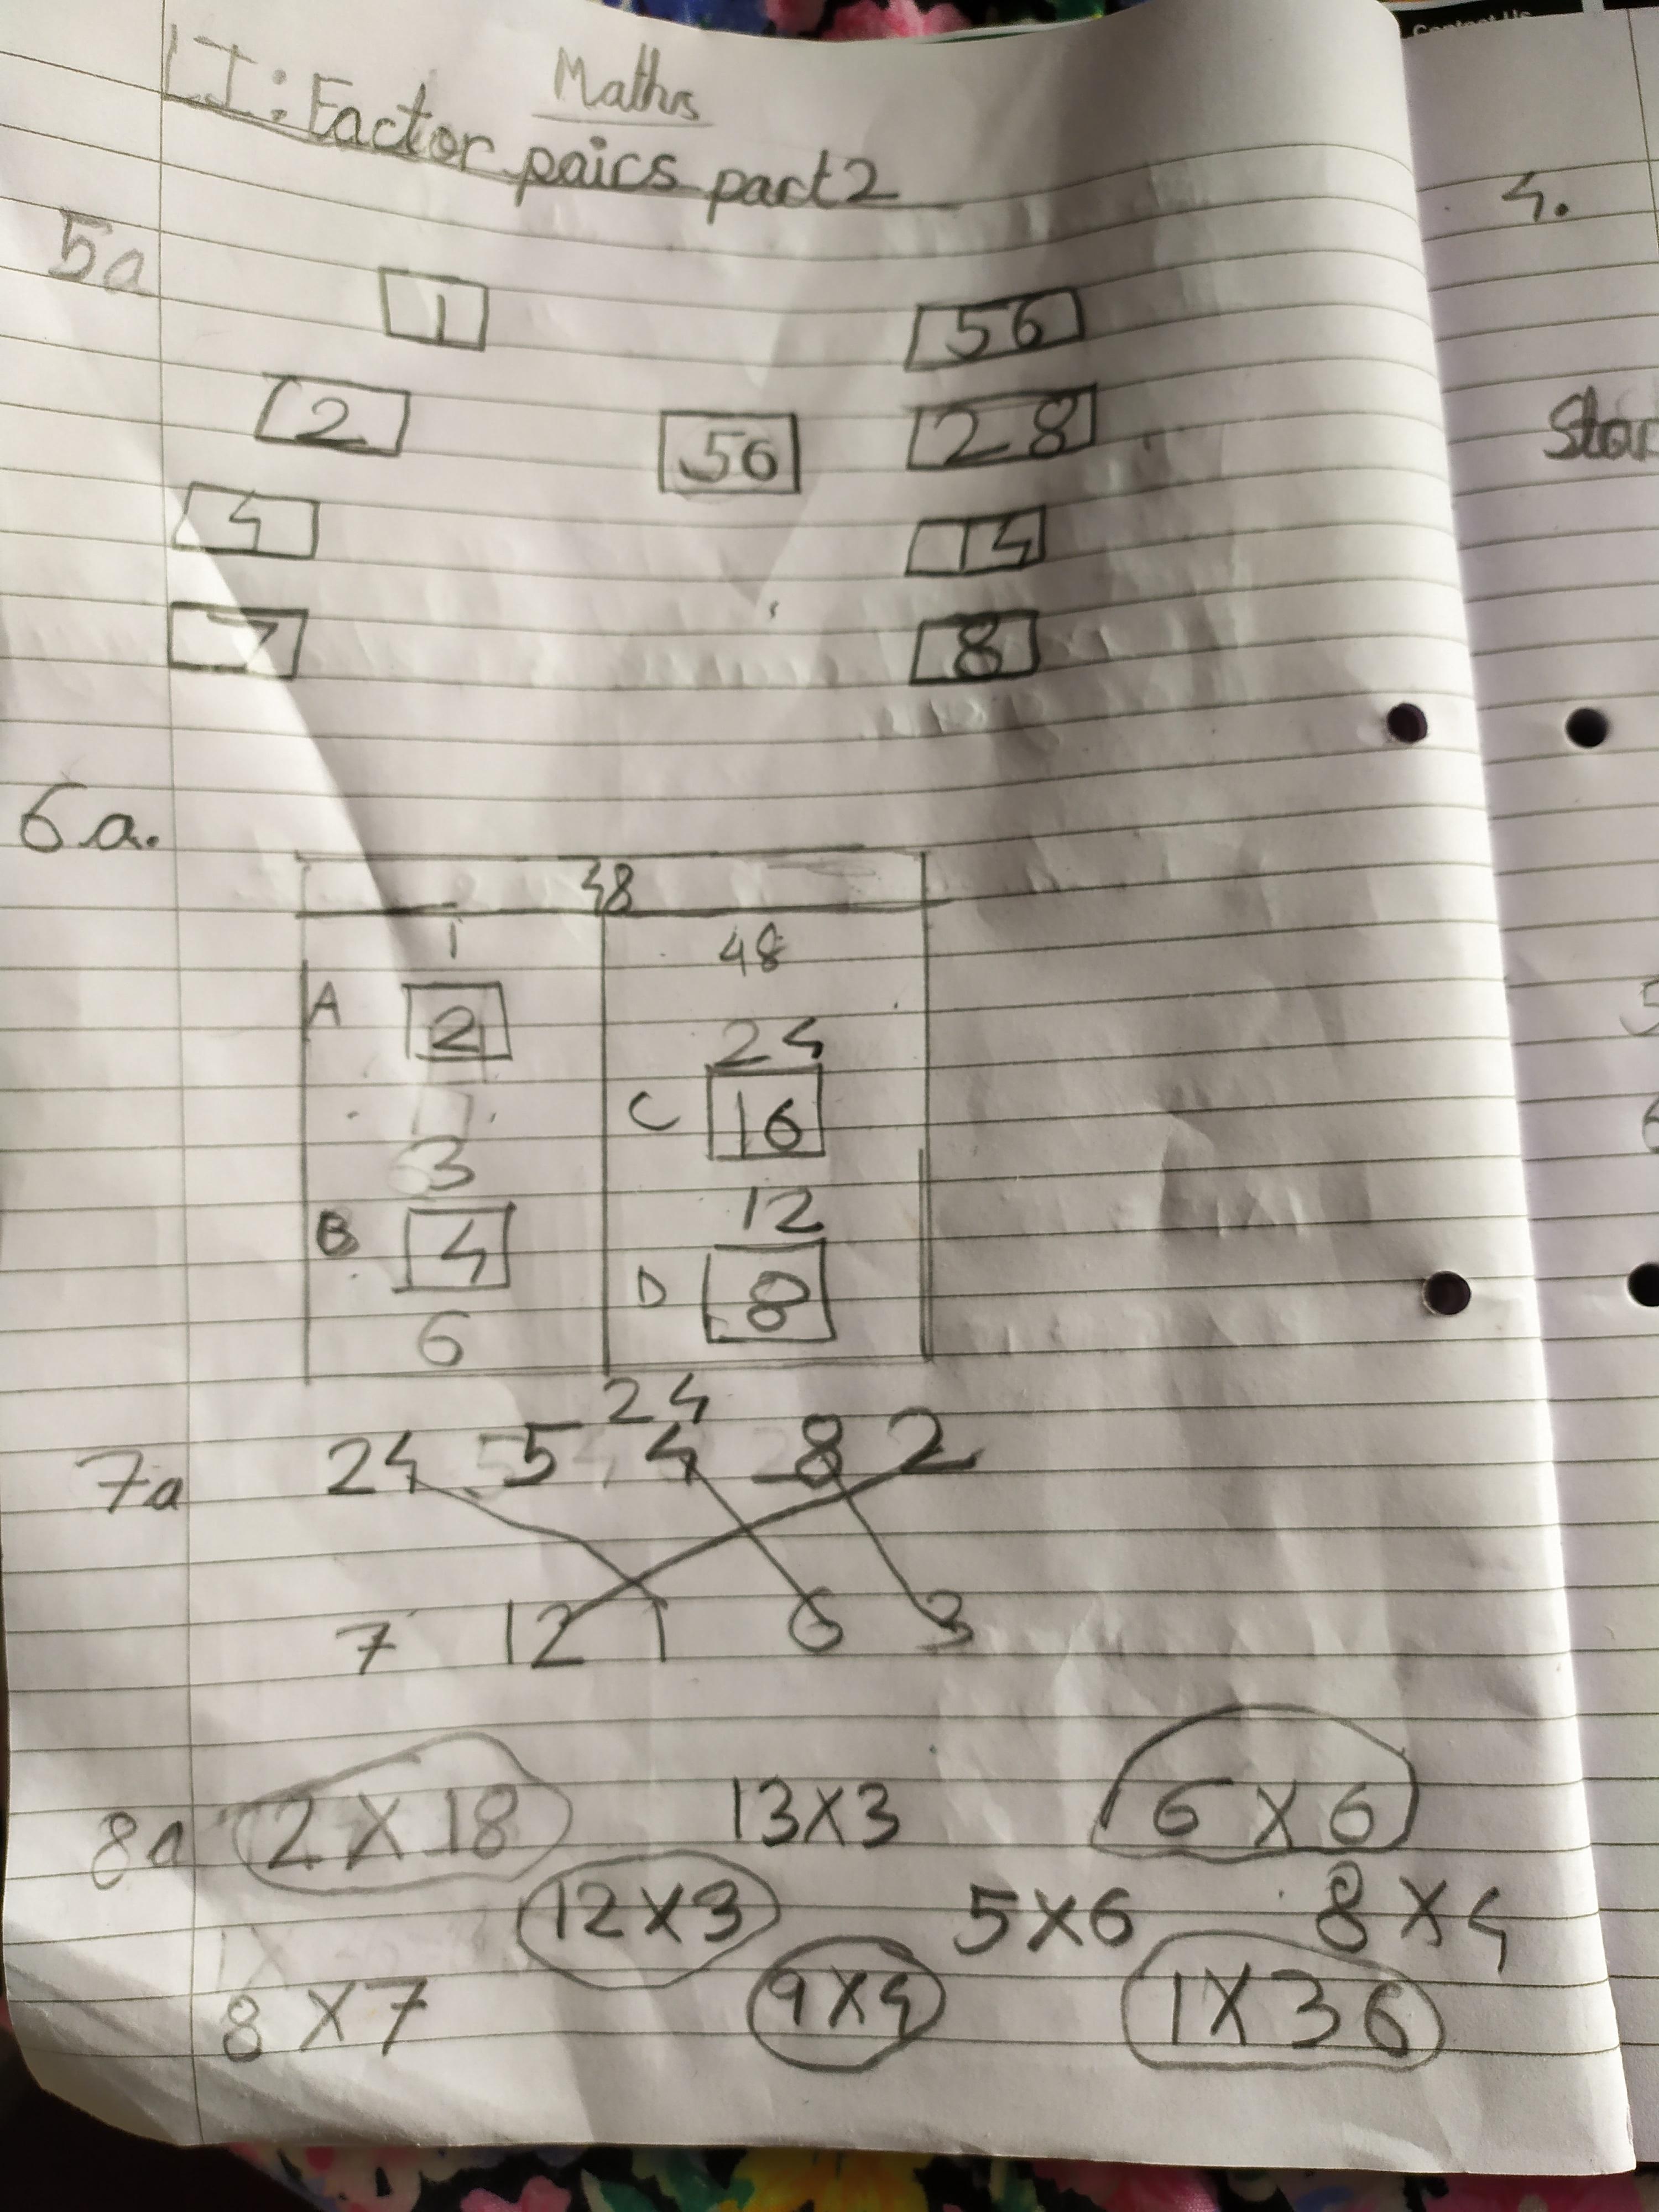 Contact Us
Maths
LI: Factor pairs part 2
5a
1 56
2 56 28
4 14
7 8
6a.
48
1 48
A 2 24
3 C 16
B 4 12
6 D 8
24
7a 24 5 4 8 2
7 12 1 6 3
8a 2 X 18 13X3 6 X 6
12X3 5X6 8 X 4
8 X 7 9X4 1X 36
4.